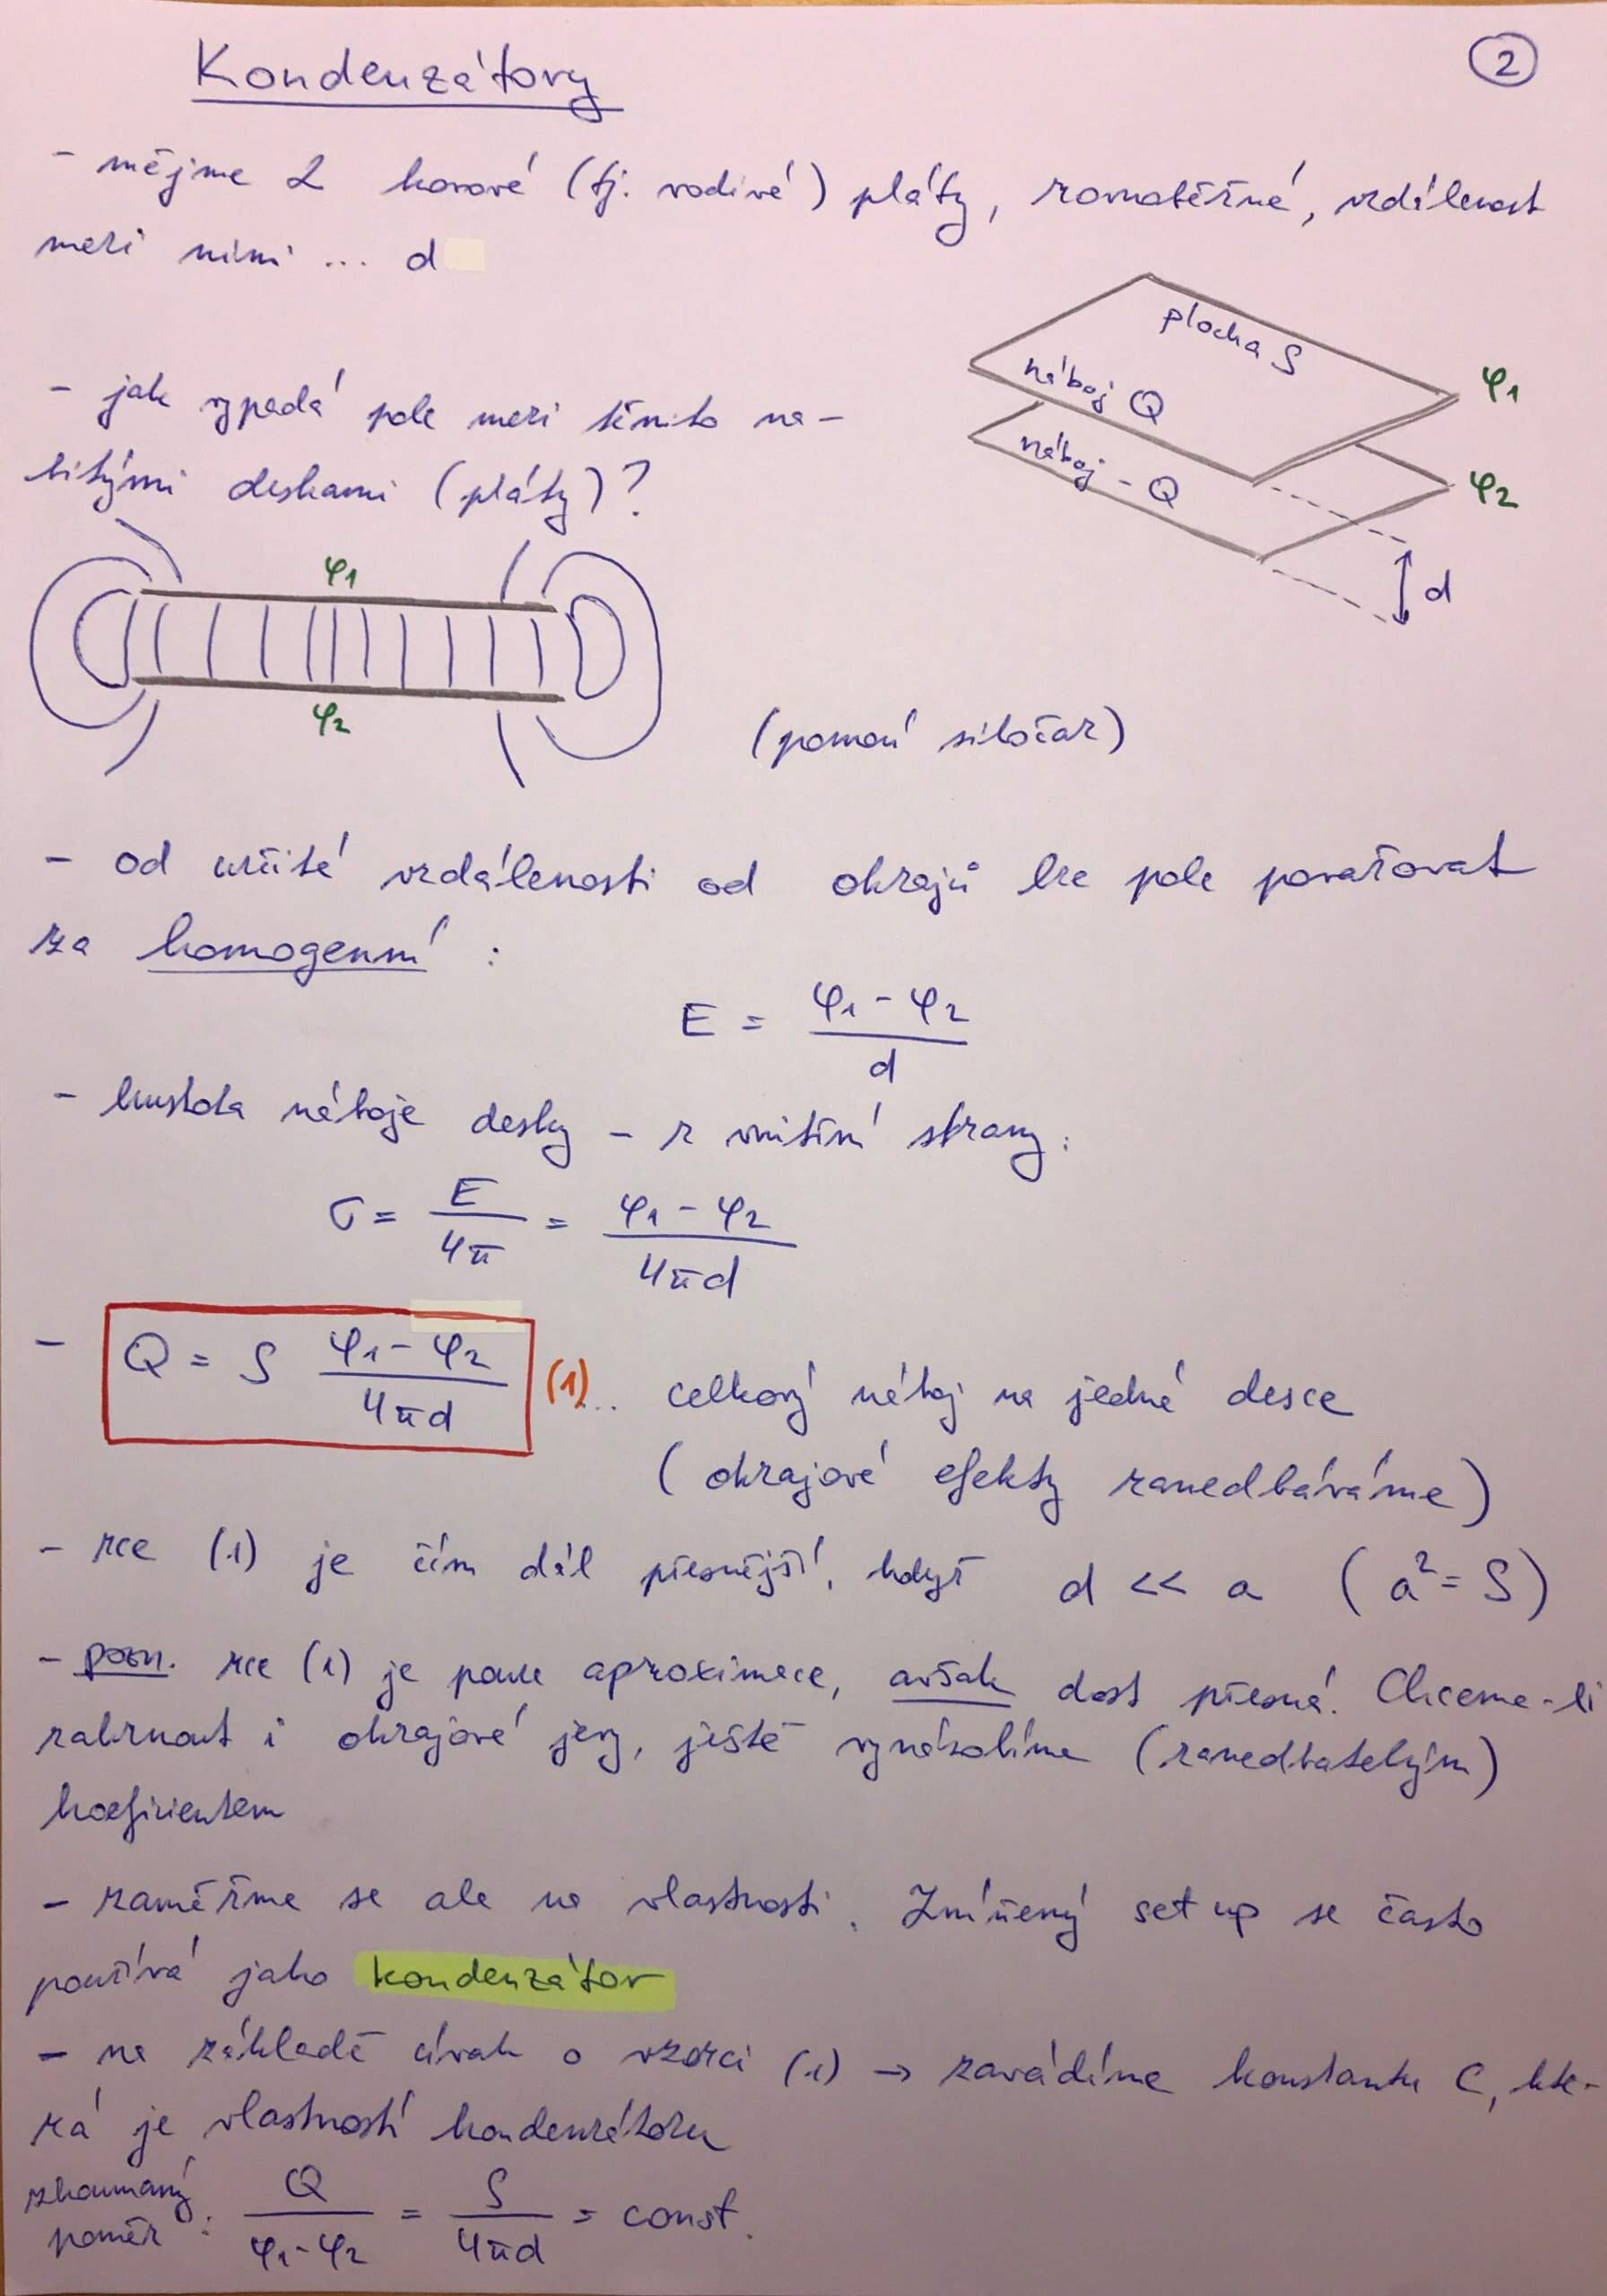 Kondenzátory
2
- mějme 2 kovové (tj. vodivé) pláty, rovnoběžné, vzdálenost
mezi nimi ... d
plocha S
náboj Q
φ1
náboj - Q
φ2
d
- jak vypadá pole mezi těmito na-
bitými deskami (pláty)?
φ1
φ2
(pomocí siločar)
- od určité vzdálenosti od okrajů lze pole považovat
za homogenní :
E = (φ1 - φ2) / d
- hustota náboje desky - z vnitřní strany:
σ = E / 4π = (φ1 - φ2) / 4πd
- Q = S (φ1 - φ2) / 4πd (1) ... celkový náboj na jedné desce
(okrajové efekty zanedbáváme)
- rce (1) je čím dál přesnější, když d << a (a² = S)
- pozn. rce (1) je pouze aproximace, avšak dost přesná. Chceme-li
zahrnout i okrajové jevy, ještě vynásobíme (zanedbatelným)
koeficientem
- zaměřme se ale na vlastnosti. Zmíněný set up se často
používá jako kondenzátor
- na základě úvah o vzorci (1) → zavádíme konstantu C, kte-
rá je vlastností kondenzátoru
zkoumaný
poměr : Q / (φ1 - φ2) = S / 4πd = const.